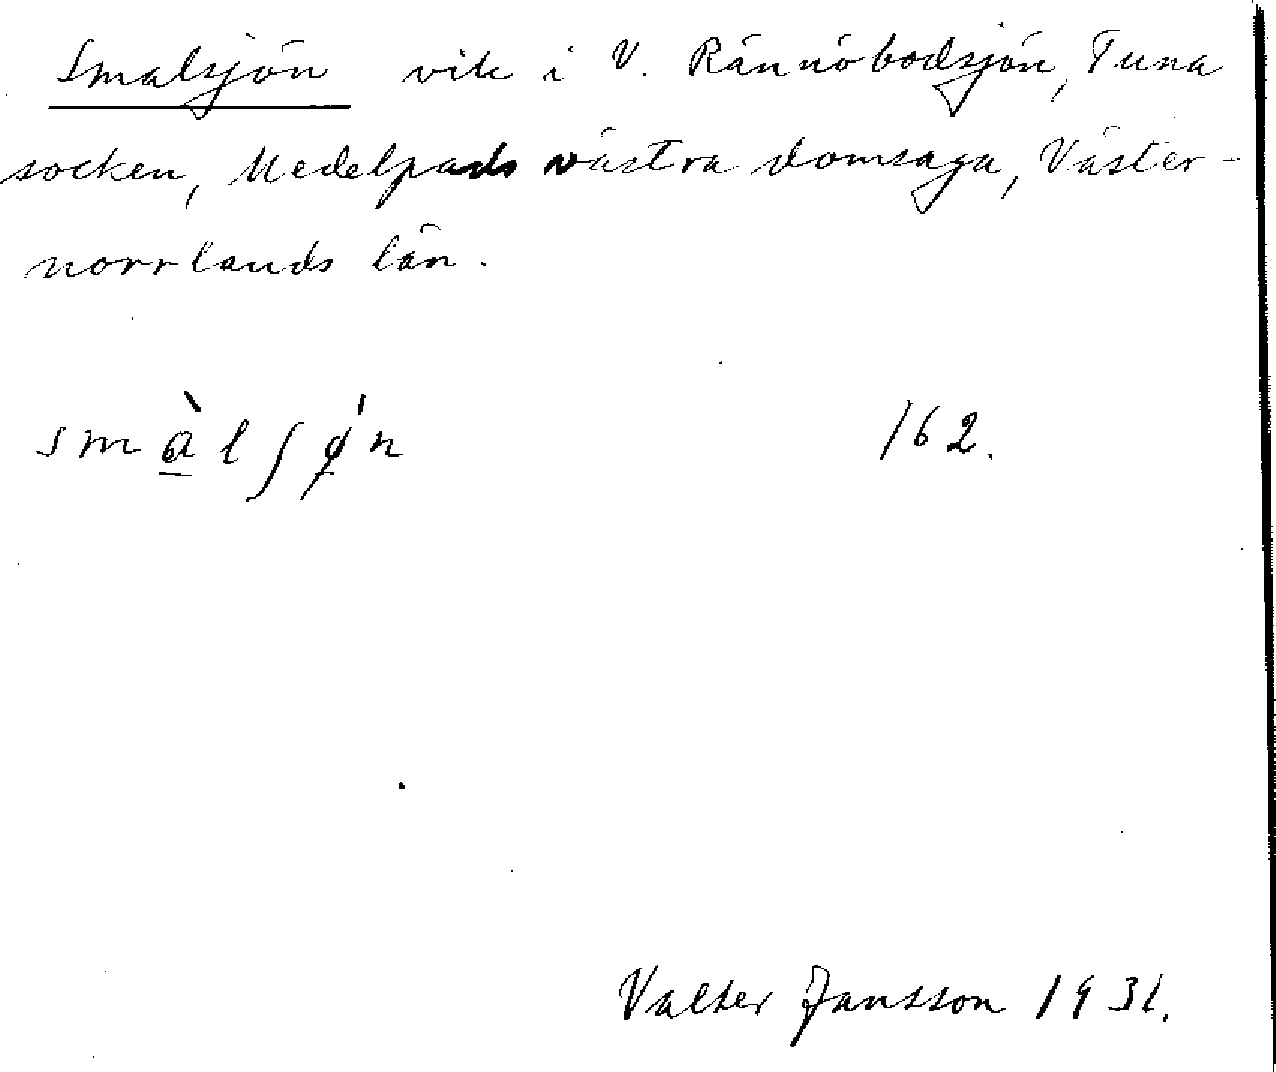 Smalsjön vik i V. Rännöbodsjön, Tuna
socken, Medelpads västra domsaga, Väster-
norrlands län.
smà̲lʃǿ̷n 162.
Valter Jansson 1931.